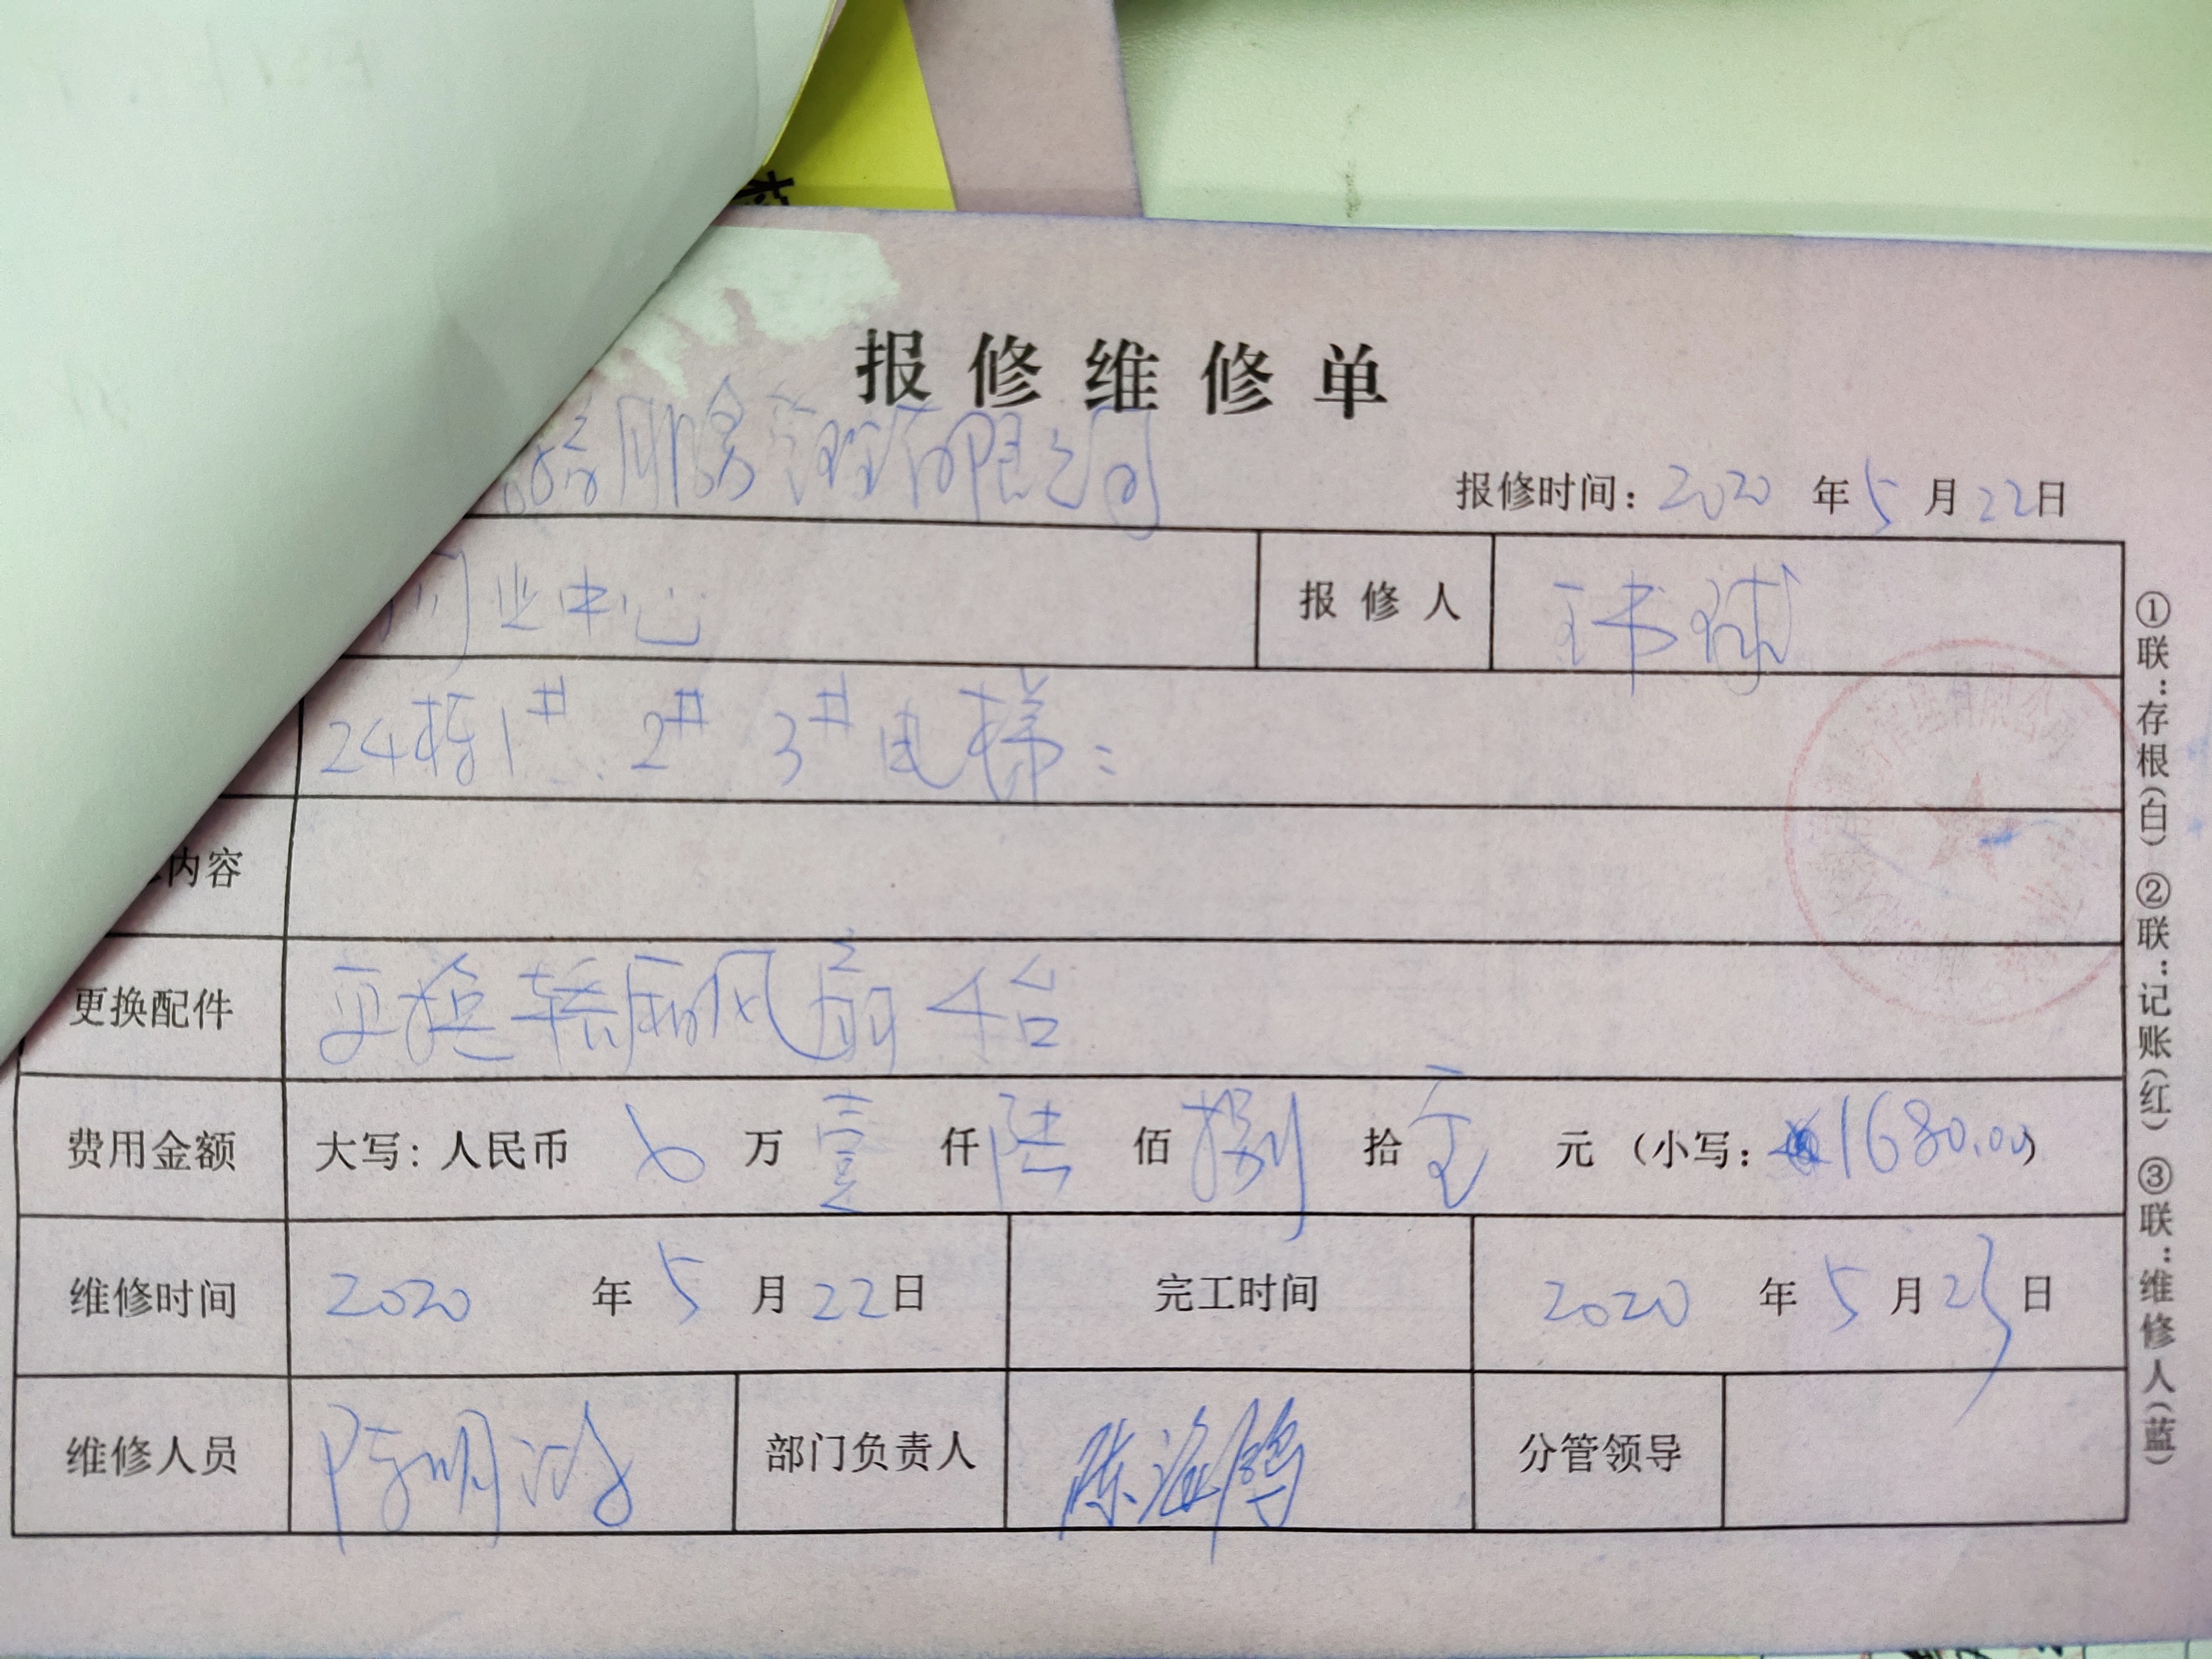 报修维修单
服务管理有限公司
报修时间：2020年5月22日
业中心 报修人
24栋1# 2# 3#电梯：
内容
更换配件 更换轿厢风扇4台
费用金额 大写：人民币 万壹仟陆佰捌拾 元（小写：1680.00）
维修时间 2020年5月22日 完工时间 2020年5月23日
维修人员 部门负责人 陈海鹏 分管领导
①联：存根（白）②联：记账（红）③联：维修人（蓝）